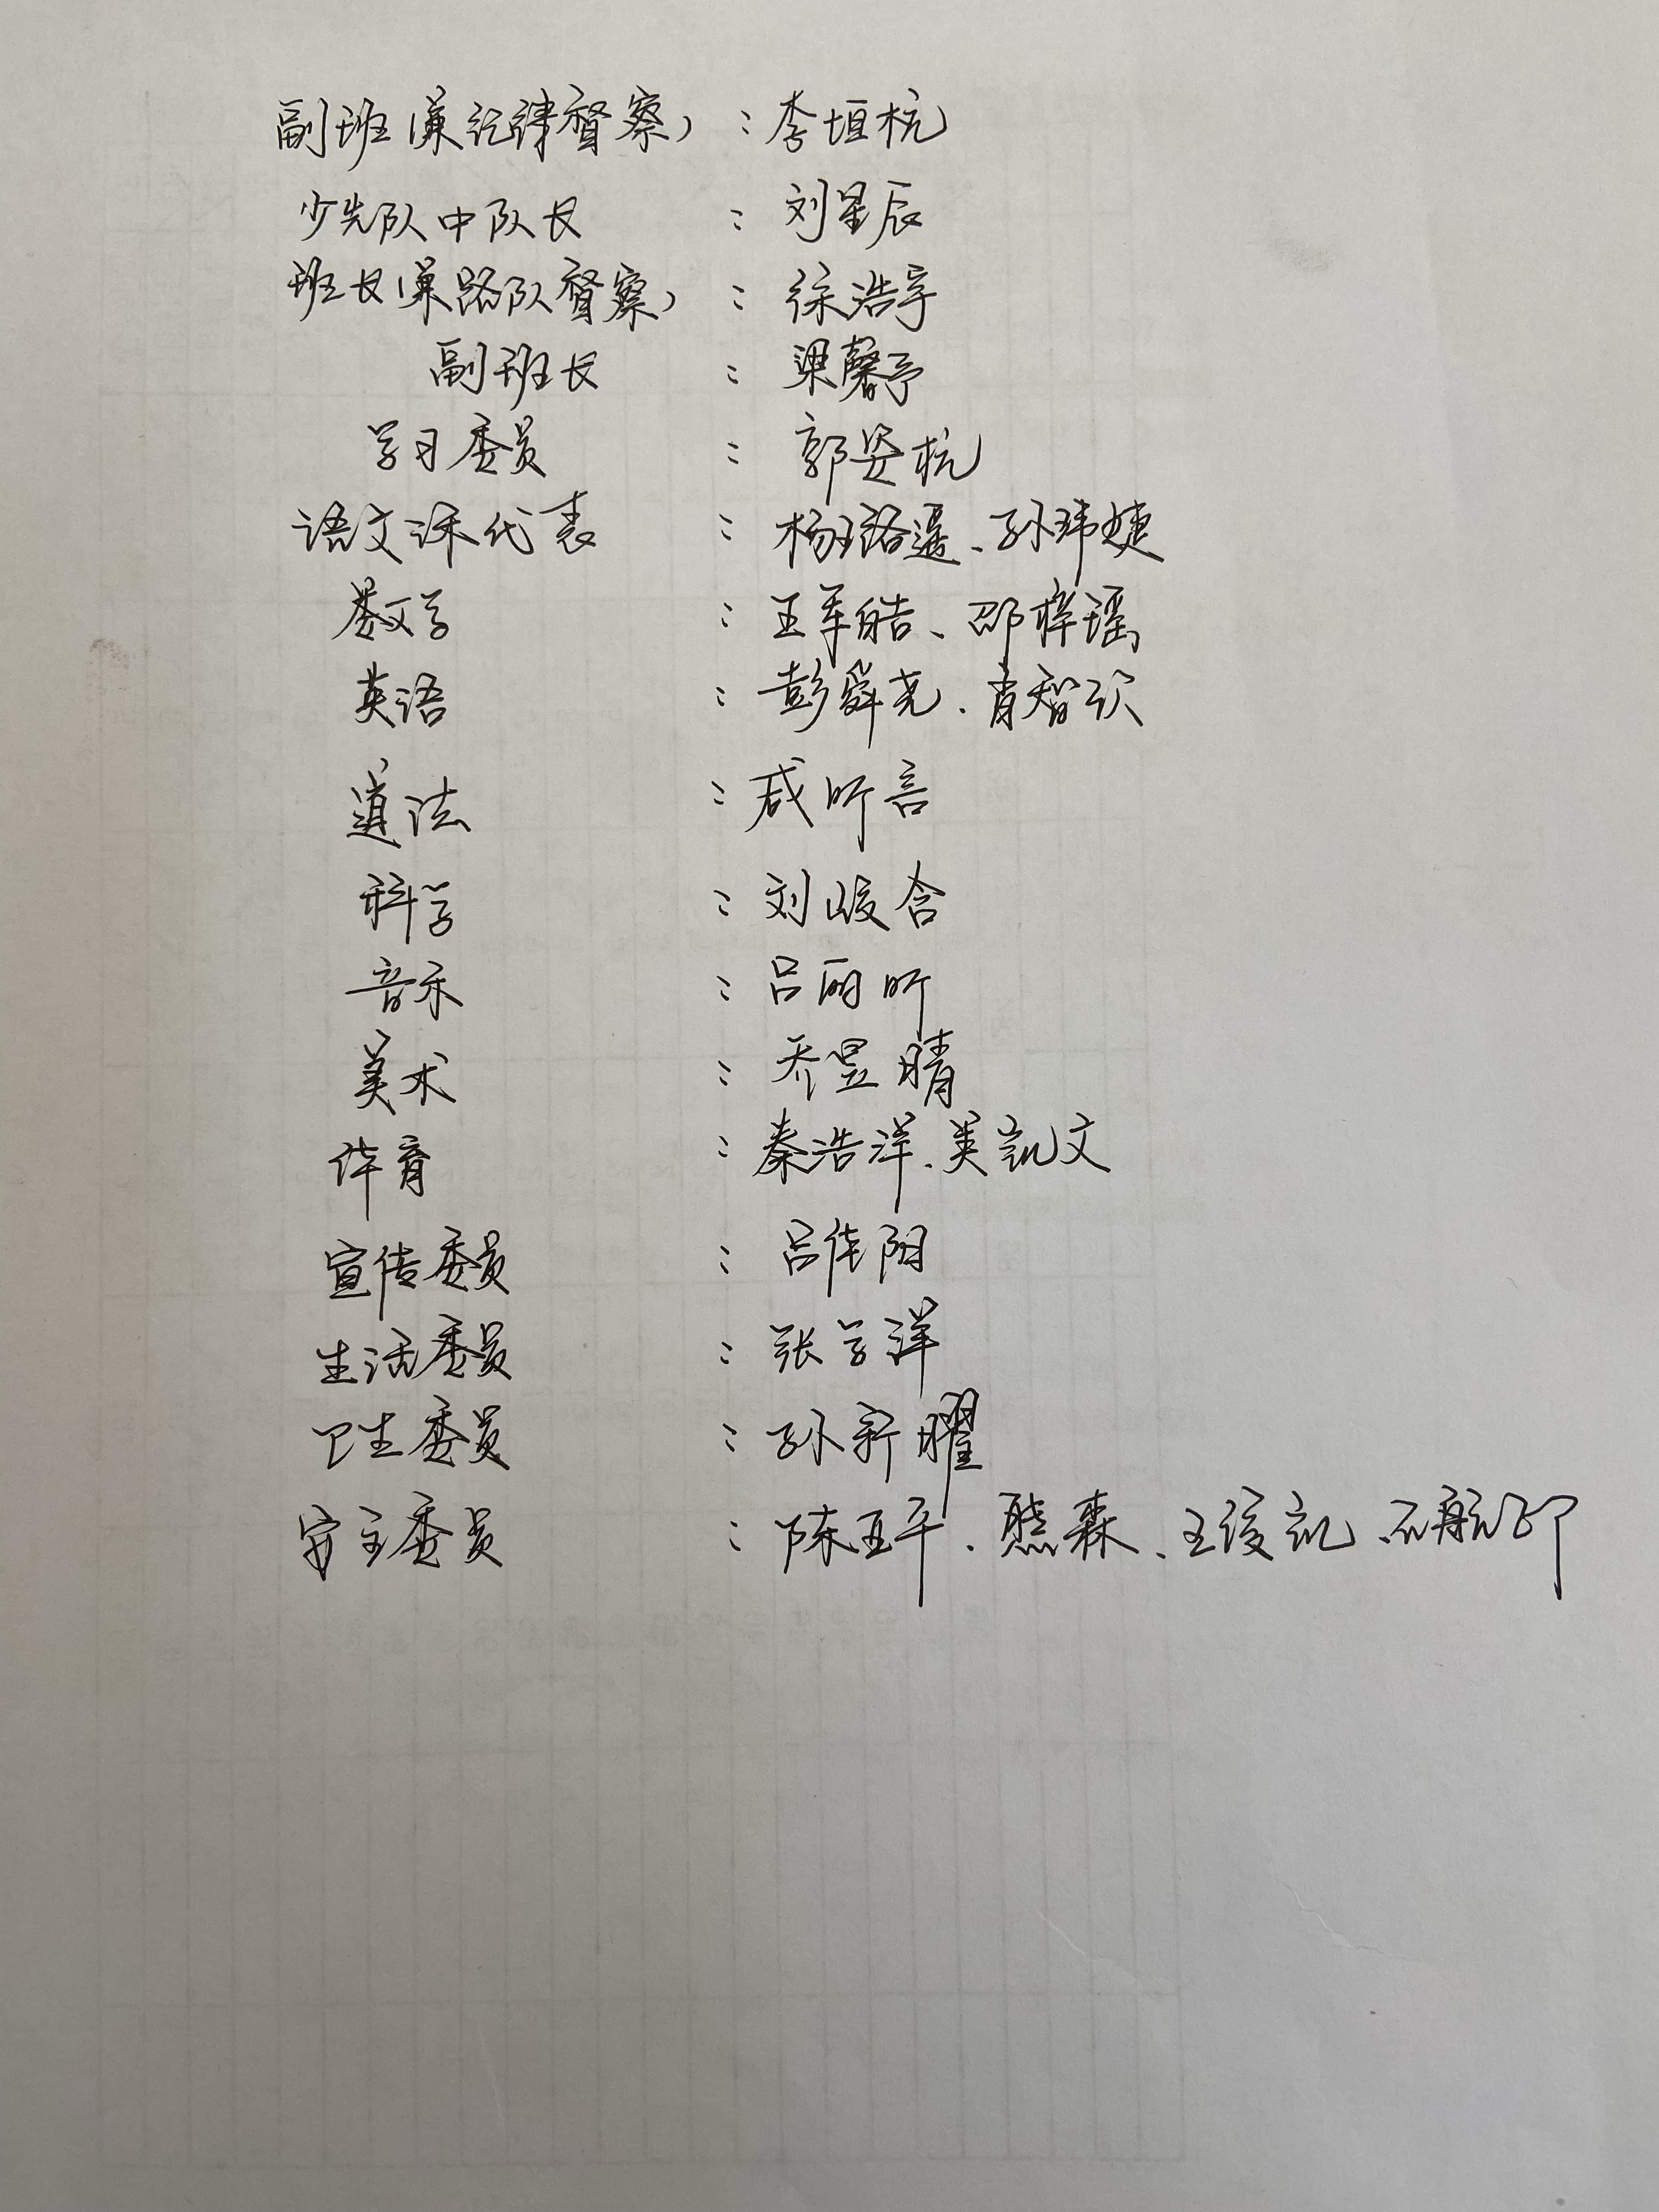 副班(兼纪律督察):李垣杭
少先队中队长:刘星辰
班长(兼路队督察):徐浩宇
副班长:梁馨予
学习委员:郭姿杭
语文课代表:杨珞遥、孙玮婕
数学:王军皓、邵梓瑶
英语:彭舜尧、肖智识
道法:咸昕言
科学:刘峻含
音乐:吕丽昕
美术:乔昱晴
体育:秦浩洋、姜凯文
宣传委员:吕佳阳
生活委员:张学洋
卫生委员:孙新曜
安全委员:陈亚平、熊森、王俊凯、石航